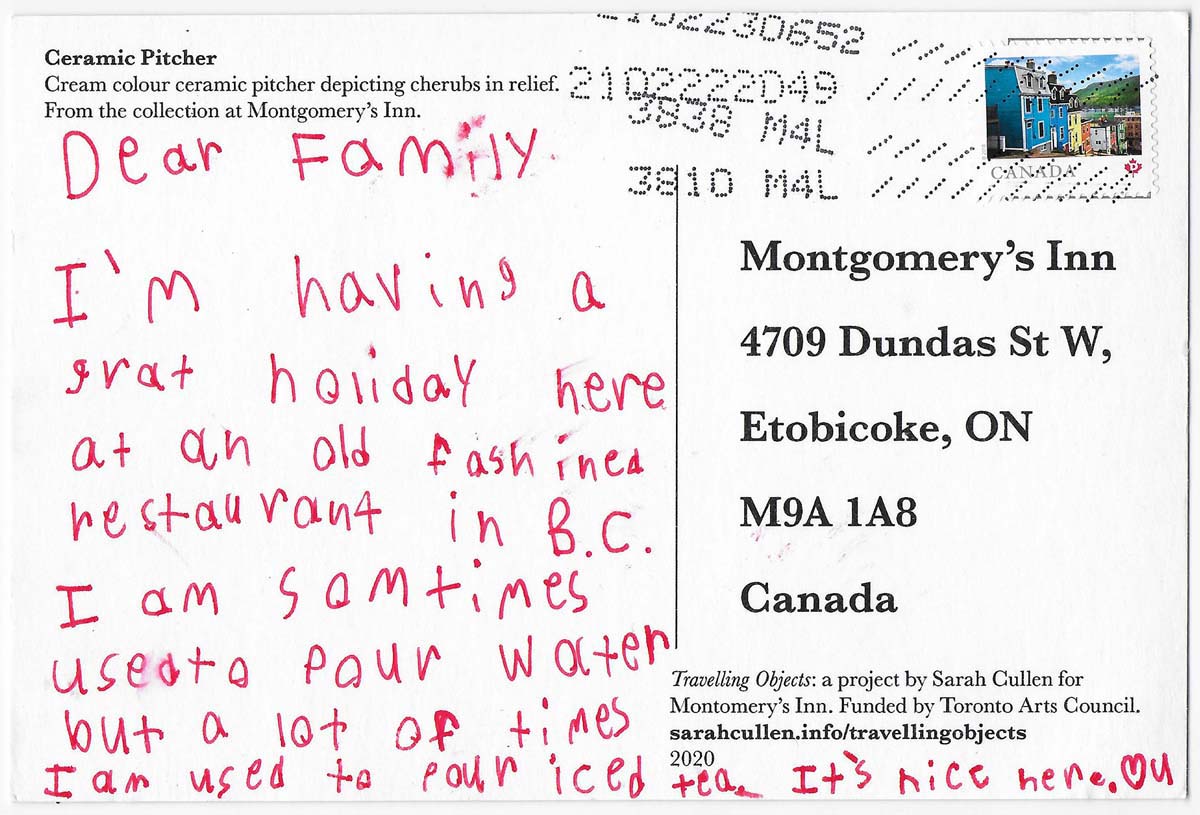 Ceramic Pitcher
Cream colour ceramic pitcher depicting cherubs in relief.
From the collection at Montgomery's Inn.
2102230652
2102222049
3538 M4L
3810 M4L
CANADA
P
Dear Family.
I'm having a
grat holiday here
at an old fashined
restaurant in B.C.
I am somtimes
used to pour water
but a lot of times
I am used to pour iced tea. It's nice here. ♡u
Montgomery's Inn
4709 Dundas St W,
Etobicoke, ON
M9A 1A8
Canada
Travelling Objects: a project by Sarah Cullen for
Montomery's Inn. Funded by Toronto Arts Council.
sarahcullen.info/travellingobjects
2020